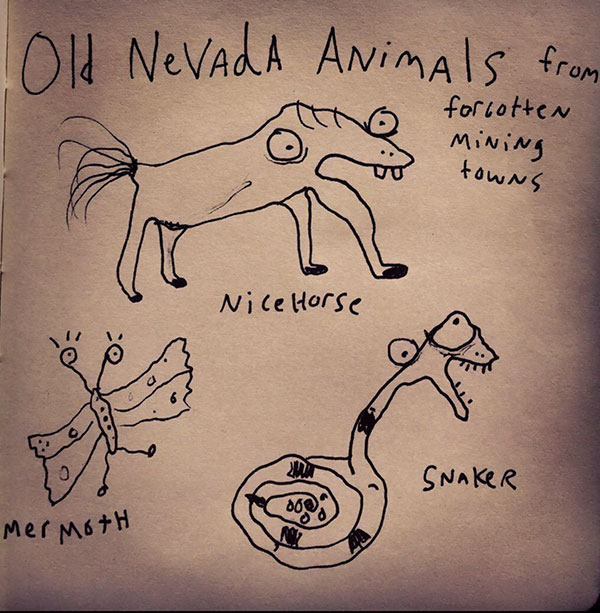 Old NevadA AnimAls from
forgotten
Mining
towns
NiceHorse
SNAKER
MerMotH